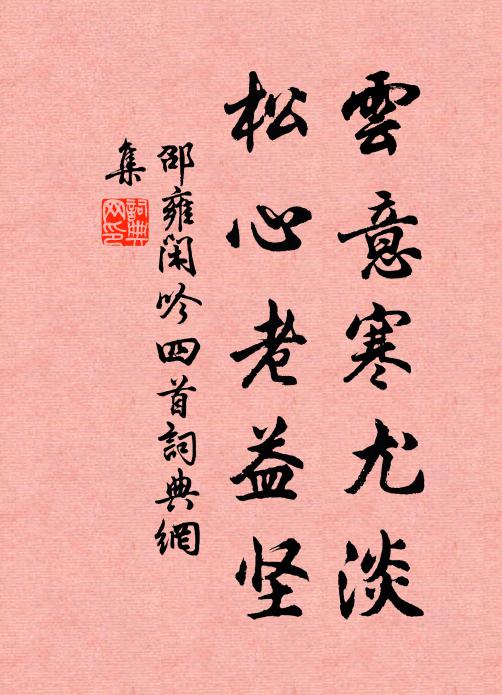 雲意寒尤淡
松心老益坚
邵雍闲吟四首詞典網
集
詞典
网印